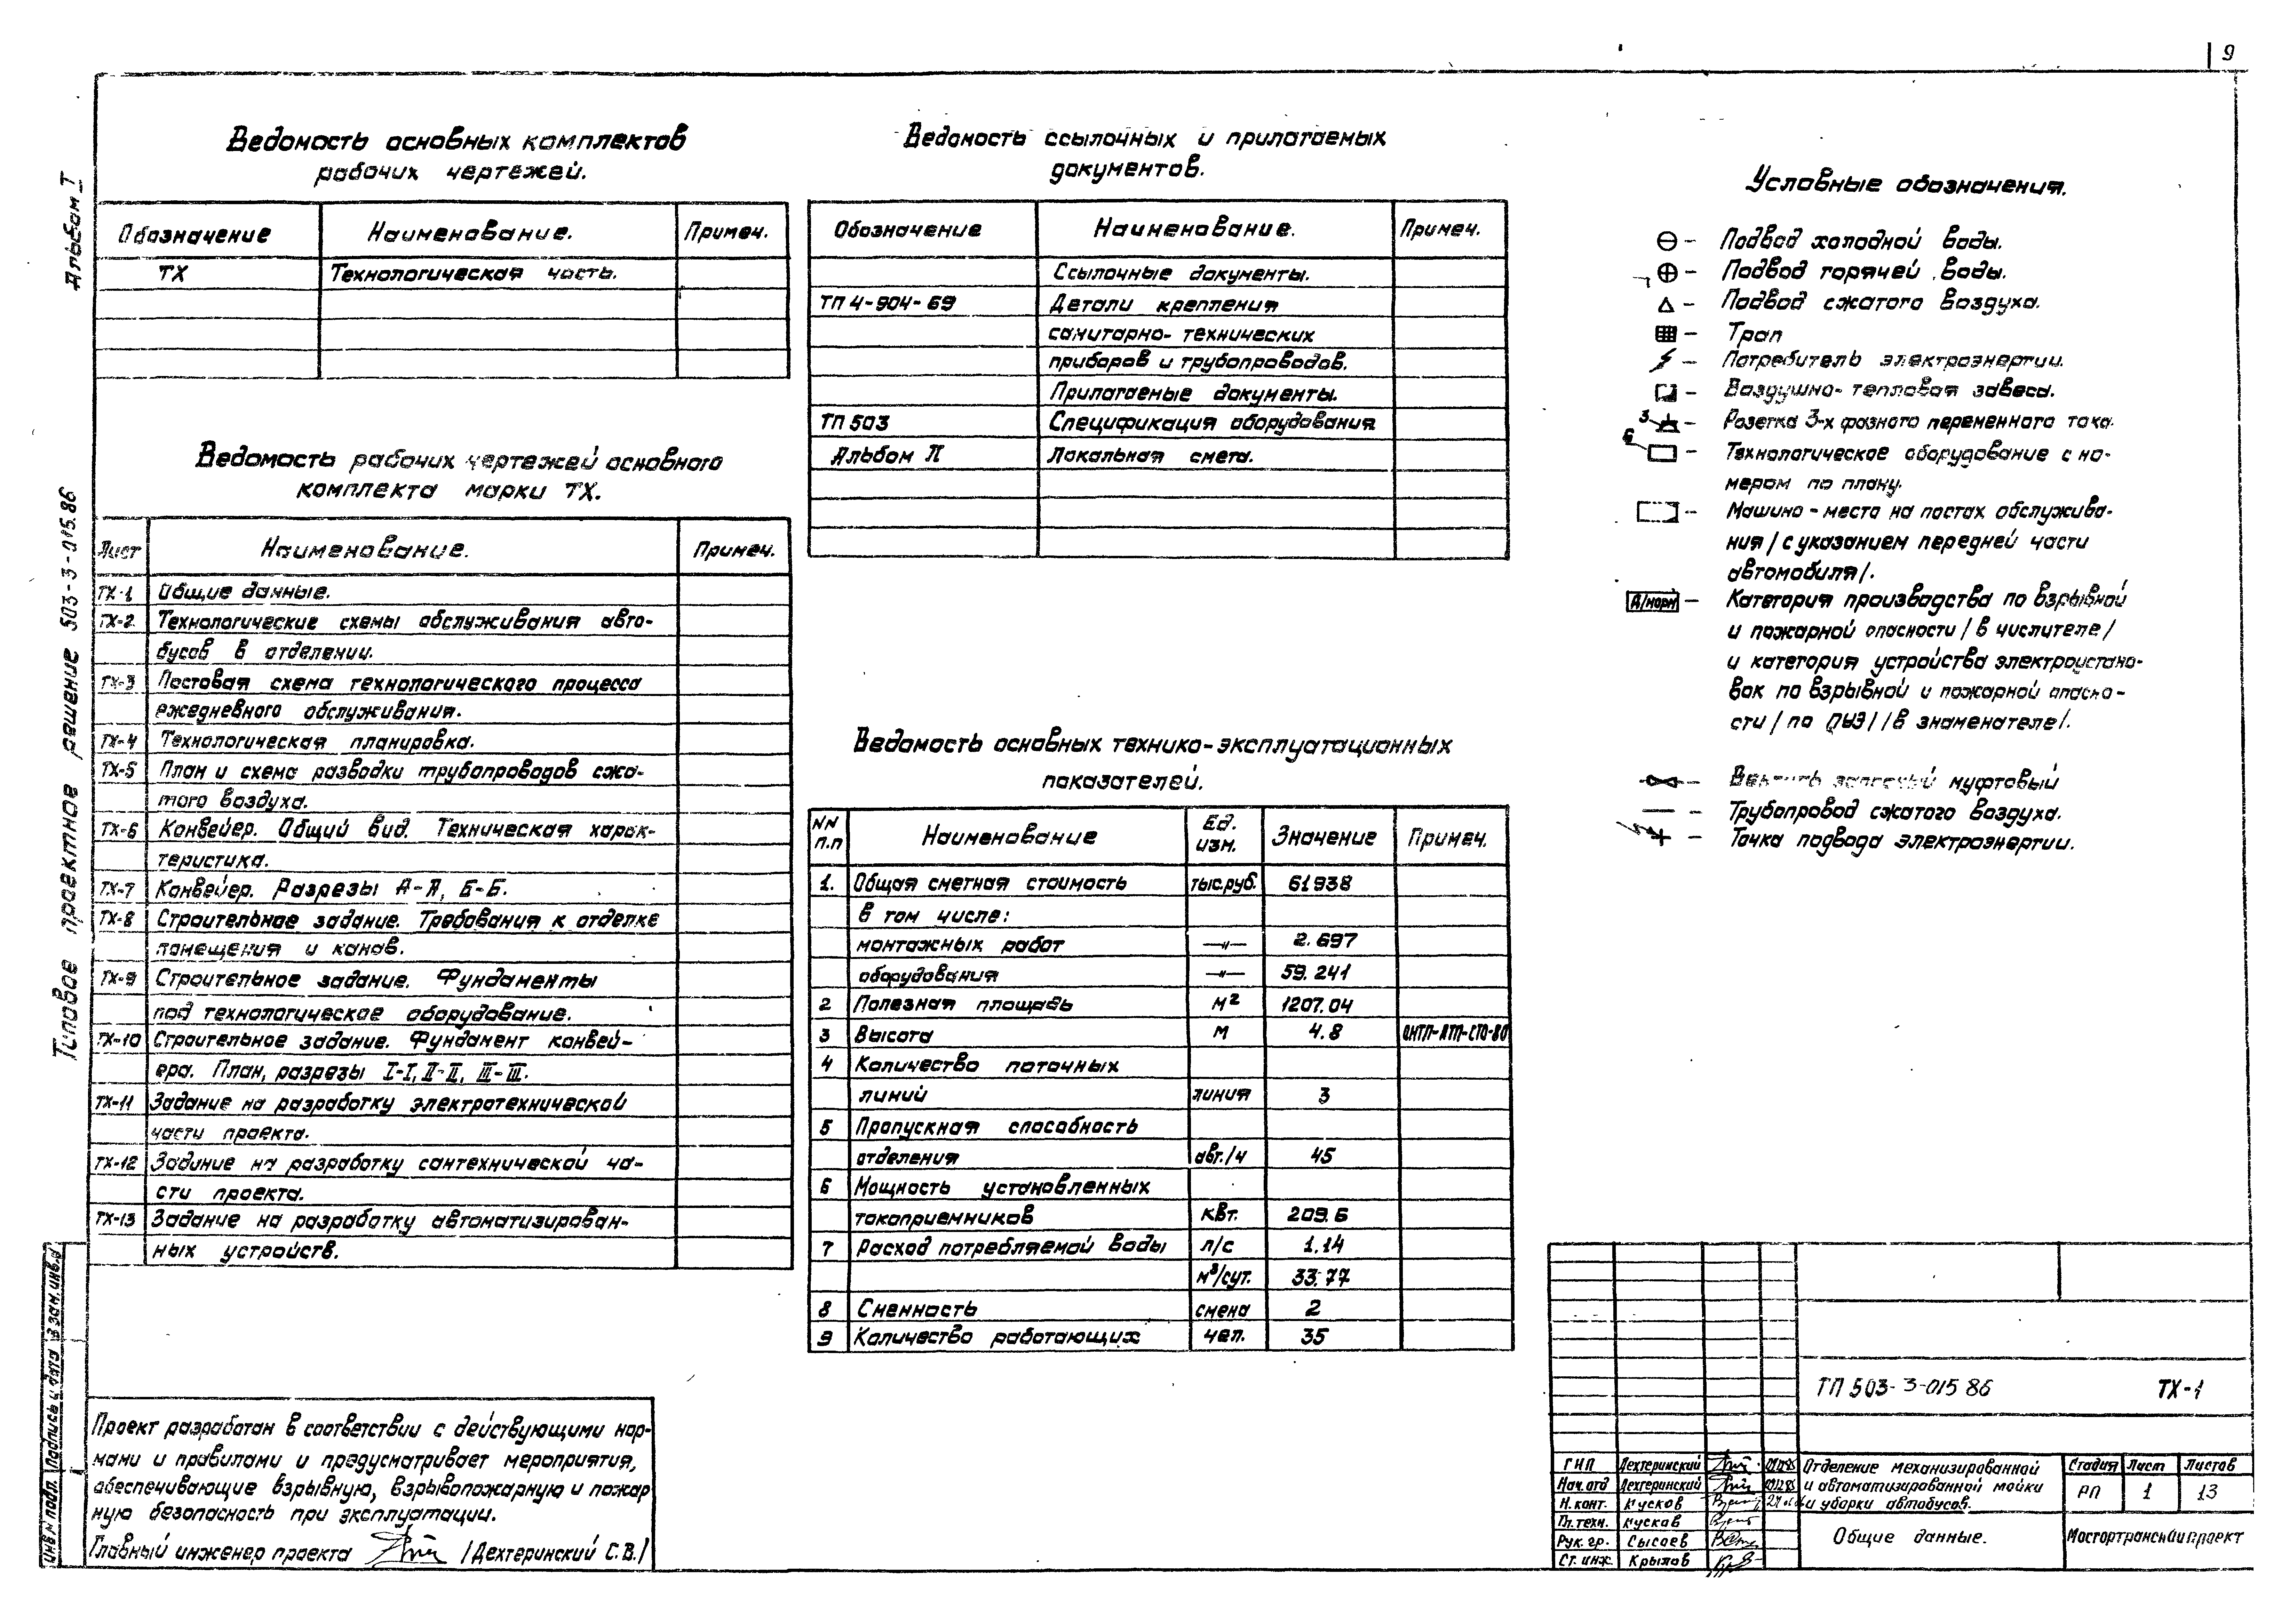 9
Альбом I
Типовое проектное решение 503-3-015.86
Ведомость основных комплектов
рабочих чертежей.
Обозначение Наименование. Примеч.
ТХ Технологическая часть.
Ведомость рабочих чертежей основного
комплекта марки ТХ.
Лист Наименование. Примеч.
ТХ-1 Общие данные.
ТХ-2 Технологические схемы обслуживания авто-
бусов в отделении.
ТХ-3 Постовая схема технологического процесса
ежедневного обслуживания.
ТХ-4 Технологическая планировка.
ТХ-5 План и схема разводки трубопроводов сжа-
того воздуха.
ТХ-6 Конвейер. Общий вид. Техническая харак-
теристика.
ТХ-7 Конвейер. Разрезы А-А, Б-Б.
ТХ-8 Строительное задание. Требования к отделке
помещения и канав.
ТХ-9 Строительное задание. Фундаменты
под технологическое оборудование.
ТХ-10 Строительное задание. Фундамент конвей-
ера. План, разрезы I-I, II-II, III-III.
ТХ-11 Задание на разработку электротехнической
части проекта.
ТХ-12 Задание на разработку сантехнической ча-
сти проекта.
ТХ-13 Задание на разработку автоматизирован-
ных устройств.
Проект разработан в соответствии с действующими нор-
мами и правилами и предусматривает мероприятия,
обеспечивающие взрывную, взрывопожарную и пожар
ную безопасность при эксплуатации.
Главный инженер проекта /Дехтеринский С.В./
Инв.№ подл. Подпись и дата Взам.инв.№
Ведомость ссылочных и прилагаемых
документов.
Обозначение Наименование. Примеч.
Ссылочные документы.
ТП 4-904-69 Детали крепления
санитарно-технических
приборов и трубопроводов.
Прилагаемые документы.
ТП 503 Спецификация оборудования
Альбом II Локальная смета.
Ведомость основных технико-эксплуатационных
показателей.
NN п.п Наименование Ед. изм. Значение Примеч.
1. Общая сметная стоимость тыс.руб. 61938
в том числе:
монтажных работ —"— 2.697
оборудования —"— 59.241
2 Полезная площадь м² 1207.04
3 Высота м 4.8 ОНТП-АТП-СТО-80
4 Количество поточных
линий линия 3
5 Пропускная способность
отделения авт./ч 45
6 Мощность установленных
токоприемников квт. 209.6
7 Расход потребляемой воды л/с 1.14
м³/сут. 33.77
8 Сменность смена 2
9 Количество работающих чел. 35
Условные обозначения.
– Подвод холодной воды.
– Подвод горячей воды.
– Подвод сжатого воздуха.
– Трап
– Потребитель электроэнергии.
– Воздушно-тепловая завеса.
3 – Розетка 3-х фазного переменного тока.
6 – Технологическое оборудование с но-
мером по плану.
– Машино-место на постах обслужива-
ния /с указанием передней части
автомобиля/.
Д/норм – Категория производства по взрывной
и пожарной опасности /в числителе/
и категория устройства электроустано-
вок по взрывной и пожарной опасно-
сти /по ПУЭ/ /в знаменателе/.
– Вентиль запорный муфтовый
– Трубопровод сжатого воздуха.
– Точка подвода электроэнергии.
ТП 503-3-015 86 ТХ-1
ГИП Дехтеринский
Нач.отд Дехтеринский
Н.конт. Кусков
Гл.техн. Кусков
Рук.гр. Сысоев
Ст.инж. Крылов
Отделение механизированной
и автоматизированной мойки
и уборки автобусов.
Стадия Лист Листов
РП 1 13
Общие данные.
Мосгортранснипроект